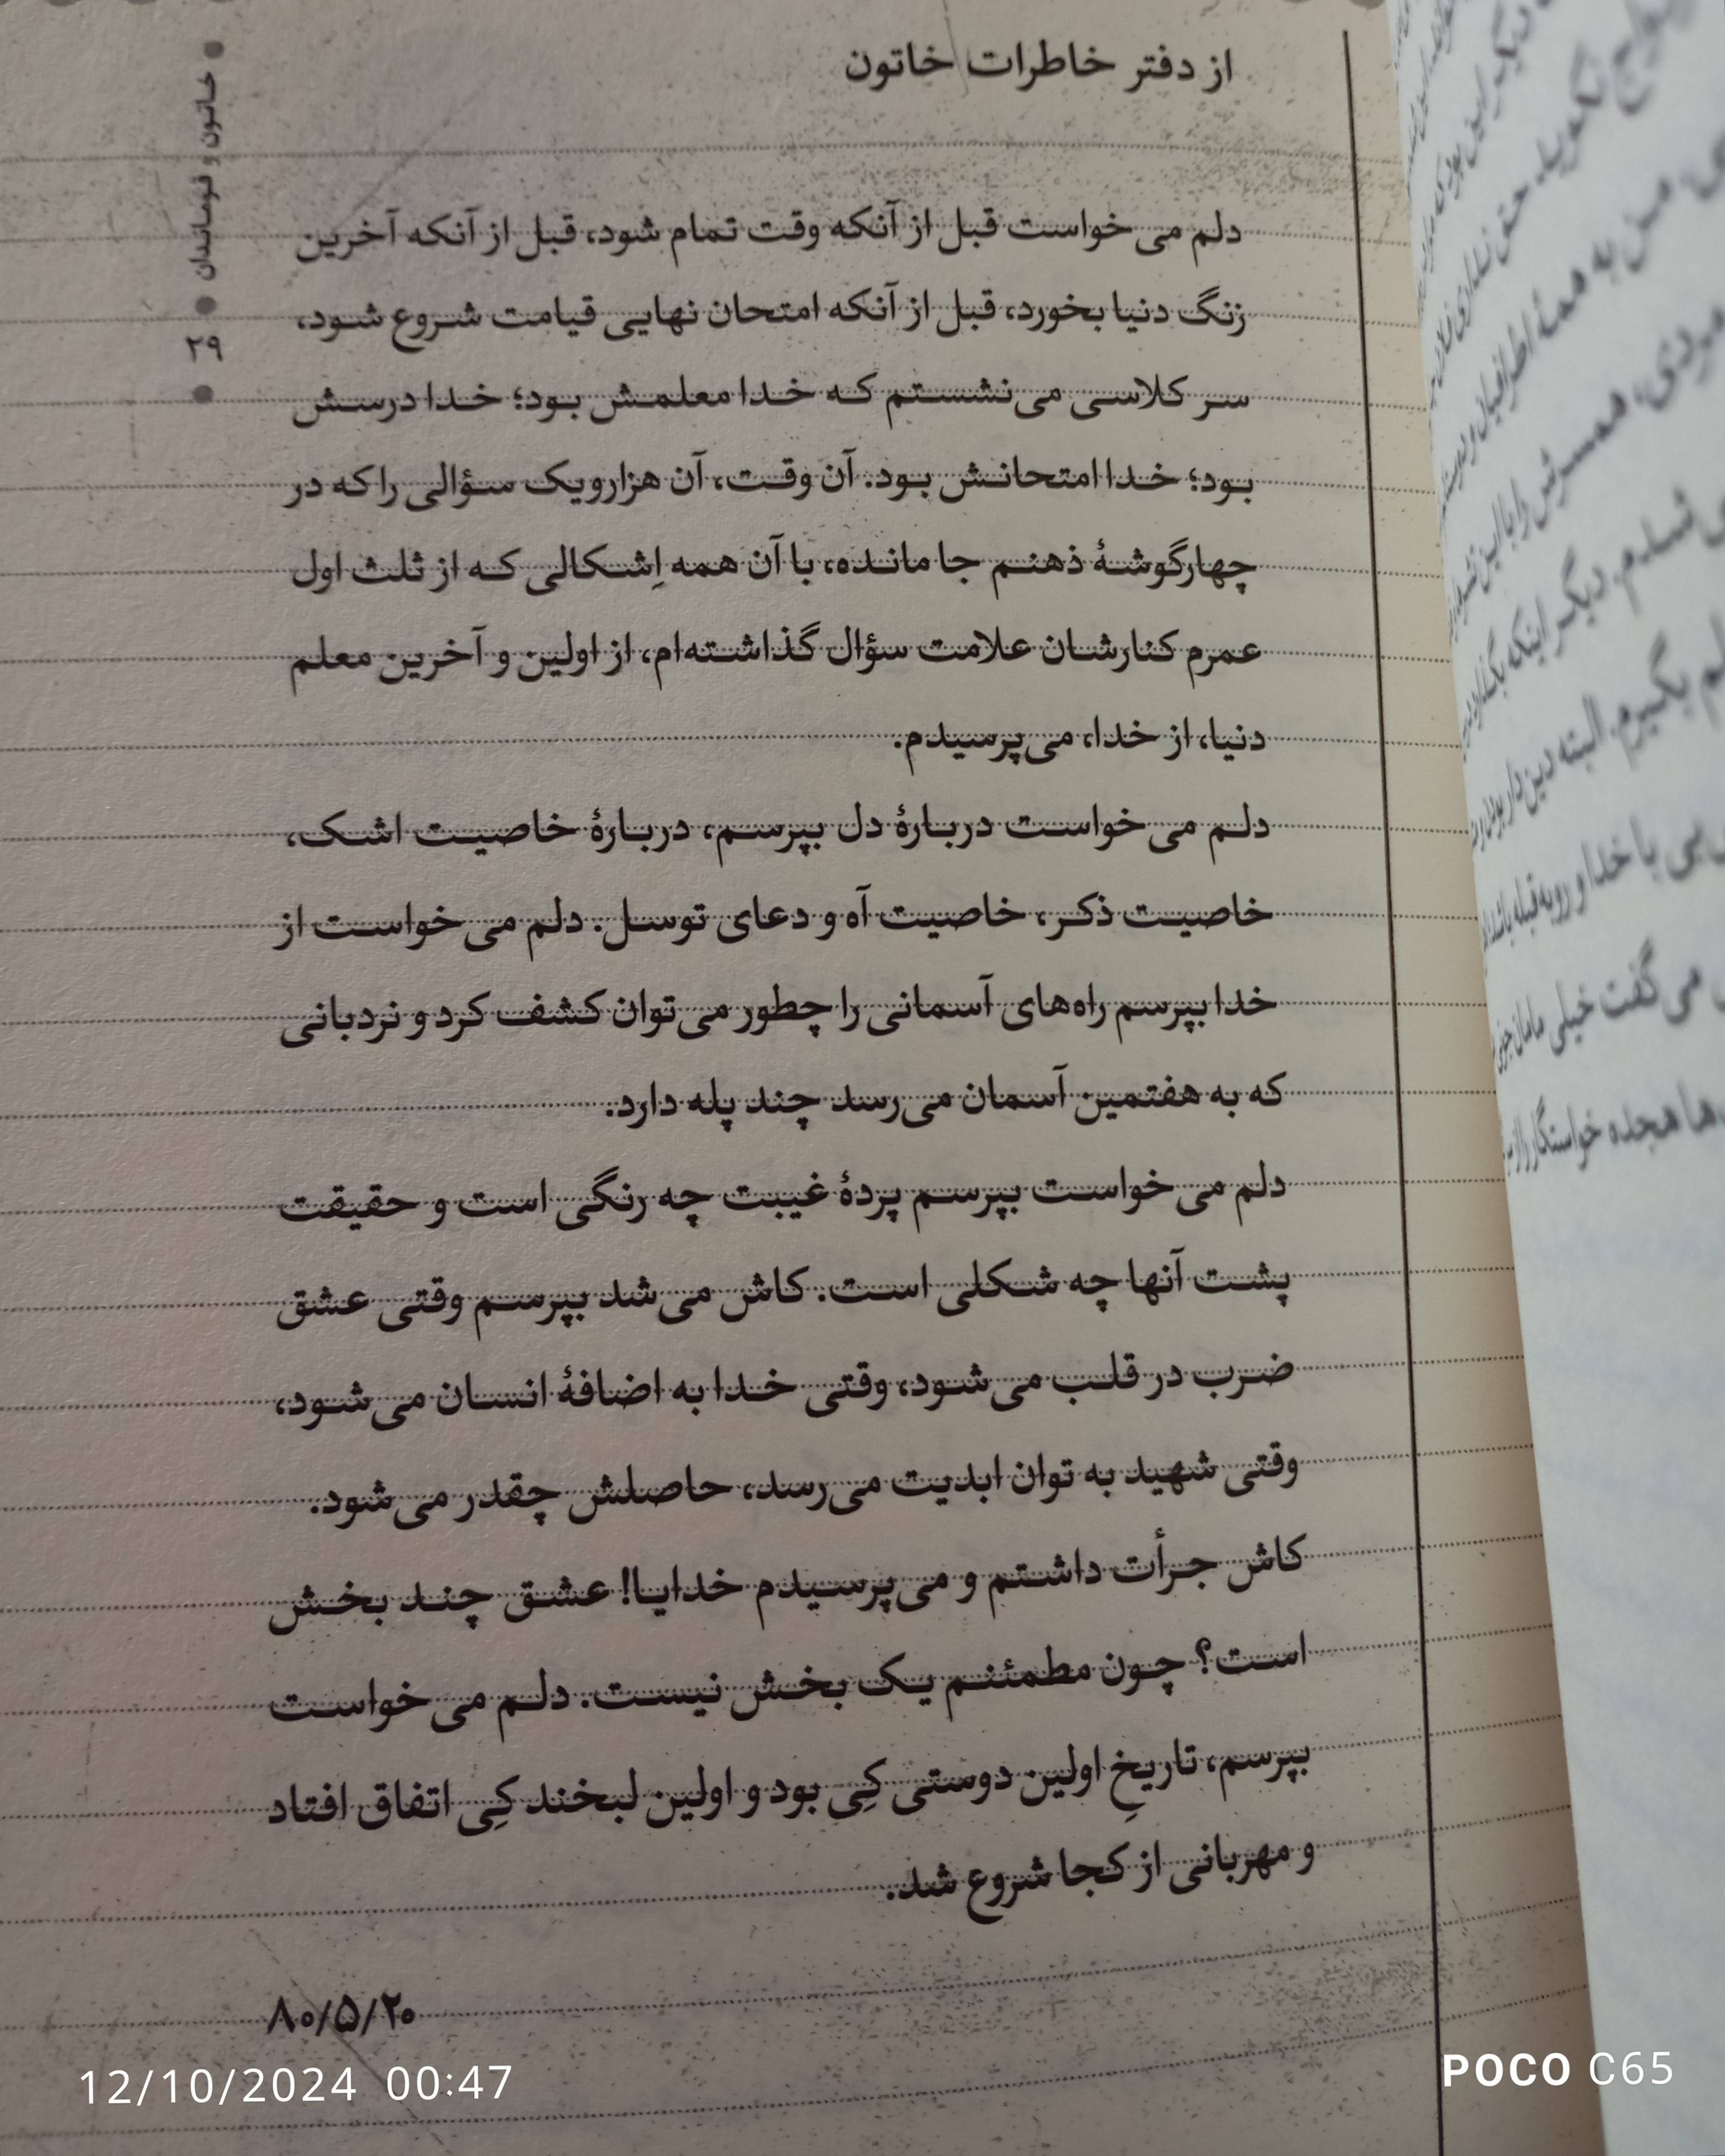 از دفتر خاطرات خاتون
دلم می‌خواست قبل از آنکه وقت تمام شود، قبل از آنکه آخرین
زنگ دنیا بخورد، قبل از آنکه امتحان نهایی قیامت شروع شود،
سر کلاسی می‌نشستم که خدا معلمش بود؛ خدا درسش
بود؛ خدا امتحانش بود. آن وقت، آن هزارویک سؤالی را که در
چهارگوشهٔ ذهنم جا مانده، با آن همه اِشکالی که از ثلث اول
عمرم کنارشان علامت سؤال گذاشته‌ام، از اولین و آخرین معلم
دنیا، از خدا، می‌پرسیدم.
دلم می‌خواست دربارهٔ دل بپرسم، دربارهٔ خاصیت اشک،
خاصیت ذکر، خاصیت آه و دعای توسل. دلم می‌خواست از
خدا بپرسم راه‌های آسمانی را چطور می‌توان کشف کرد و نردبانی
که به هفتمین آسمان می‌رسد چند پله دارد.
دلم می‌خواست بپرسم پردهٔ غیبت چه رنگی است و حقیقت
پشت آنها چه شکلی است. کاش می‌شد بپرسم وقتی عشق
ضرب در قلب می‌شود، وقتی خدا به اضافهٔ انسان می‌شود،
وقتی شهید به توان ابدیت می‌رسد، حاصلش چقدر می‌شود.
کاش جرأت داشتم و می‌پرسیدم خدایا! عشق چند بخش
است؟ چون مطمئنم یک بخش نیست. دلم می‌خواست
بپرسم، تاریخِ اولین دوستی کِی بود و اولین لبخند کِی اتفاق افتاد
و مهربانی از کجا شروع شد.
۸۰/۵/۲۰
خاتون و قوماندان
۲۹
12/10/2024 00:47
POCO C65